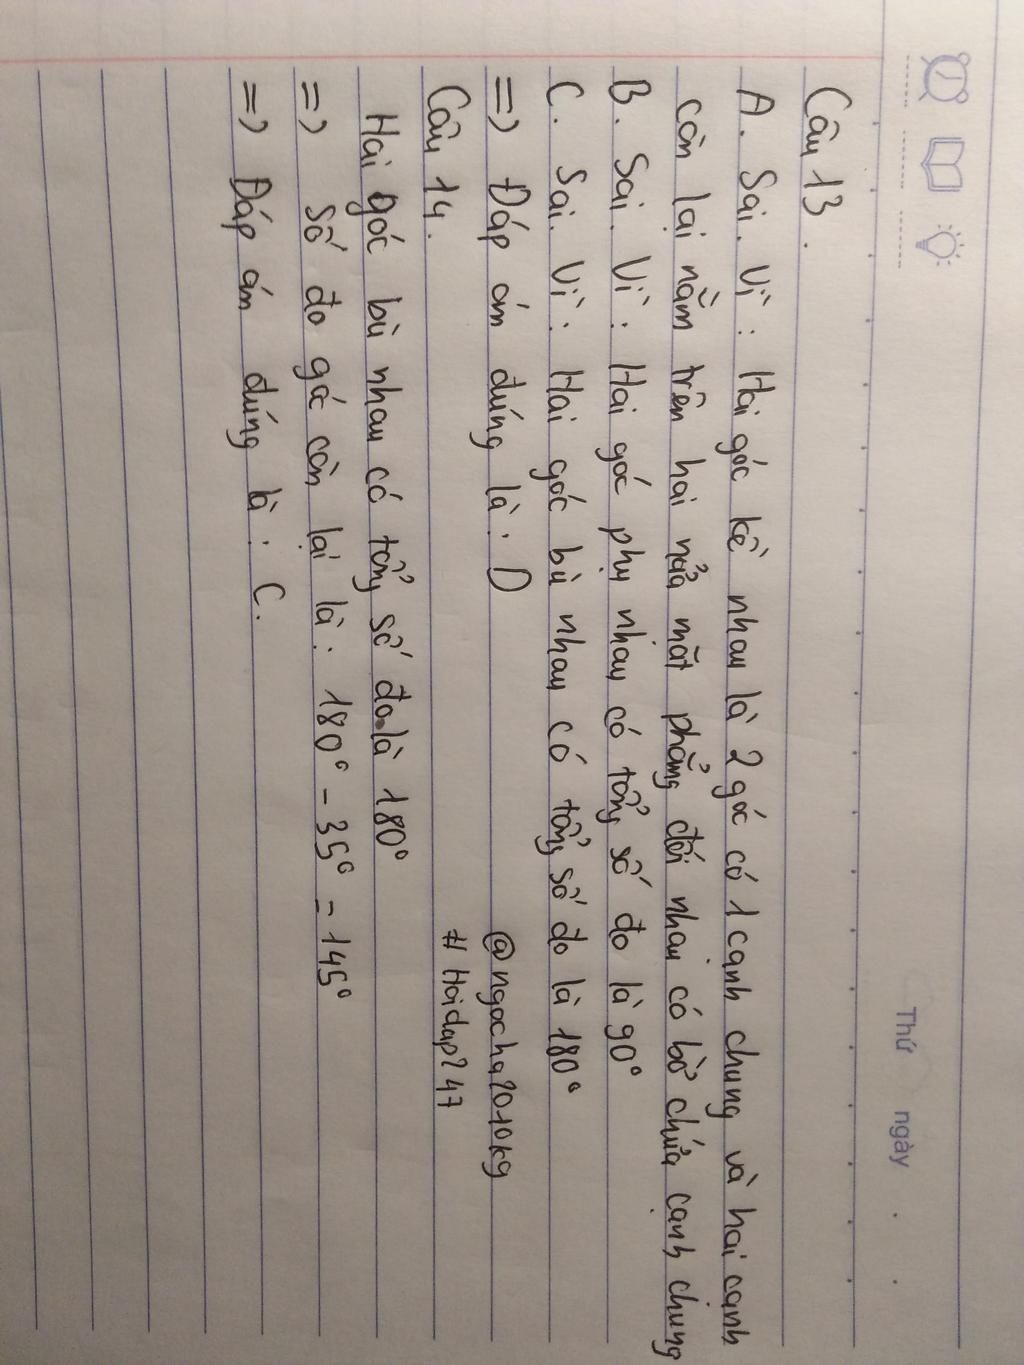 Thứ ngày
Câu 13.
A. Sai. Vì: Hai góc kề nhau là 2 góc có 1 cạnh chung và hai cạnh
còn lại nằm trên hai nửa mặt phẳng đối nhau có bờ chứa cạnh chung
B. Sai. Vì: Hai góc phụ nhau có tổng số đo là 90°
C. Sai. Vì: Hai góc bù nhau có tổng số đo là 180°
=> Đáp án đúng là: D
@ngocha2010kg
Câu 14.
#Hoidap247
Hai góc bù nhau có tổng số đo là 180°
=> Số đo góc còn lại là: 180° - 35° = 145°
=> Đáp án đúng là: C.